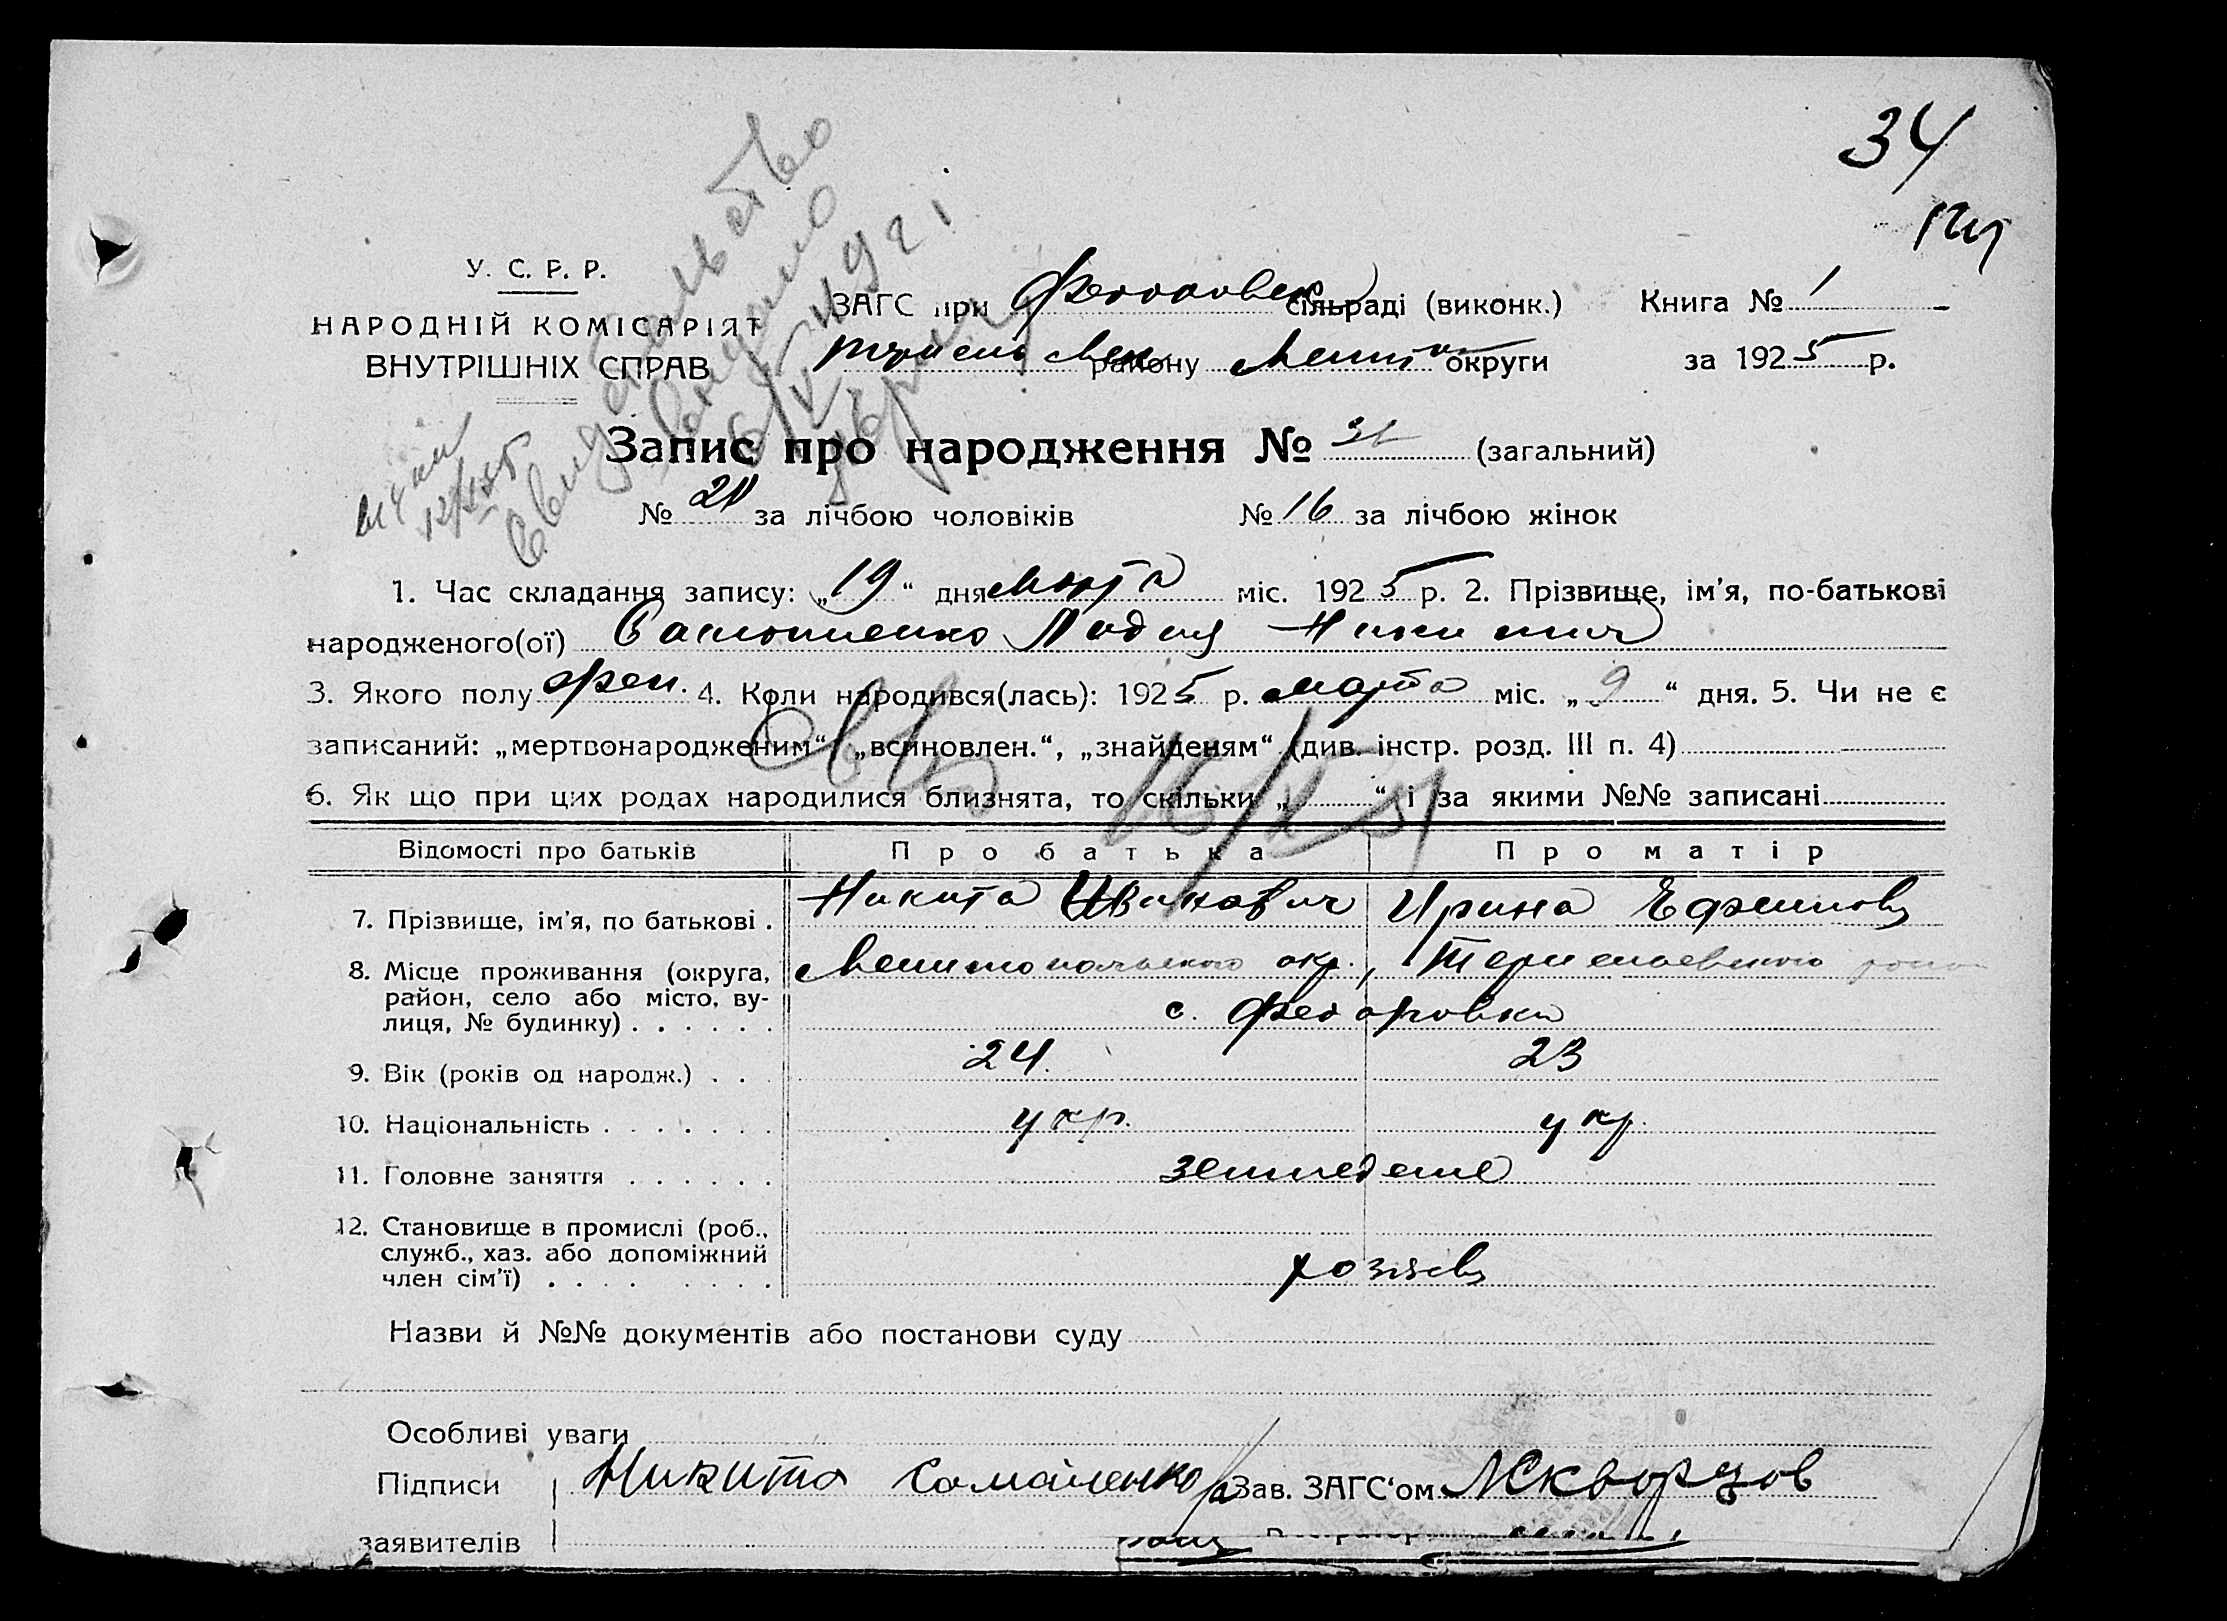 34
У. С. Р. Р.
НАРОДНІЙ КОМІСАРІЯТ
ВНУТРІШНІХ СПРАВ
ЗАГС при сільраді (виконк.) Книга № 1
району округи за 1925 р.
Свидетельство
Запис про народження № (загальний)
№ за лічбою чоловіків № 16 за лічбою жінок
1. Час складання запису: „19“ дня Марта міс. 1925 р. 2. Прізвище, ім'я, по-батькові
народженого(ої)
3. Якого полу жен. 4. Коли народився(лась): 1925 р. марта міс. „9“ дня. 5. Чи не є
записаний: „мертвонародженим“, „всиновлен.“, „знайденям“ (див. інстр. розд. III п. 4)
6. Як що при цих родах народилися близнята, то скільки „ “ і за якими №№ записані
Відомості про батьків Про батька Про матір
7. Прізвище, ім'я, по батькові . Никита Иванович Ирина Ефимов
8. Місце проживання (округа, Мелитопольского окр.,
район, село або місто, ву- с. Федоровка
лиця, № будинку) . . . . . .
9. Вік (років од народж.) . . 24. 23
10. Національність . . . . . . . укр. укр.
11. Головне заняття . . . . . . земледелие
12. Становище в промислі (роб.,
служб., хаз. або допоміжний
член сім'ї) . . . . . . . . . хозяев
Назви й №№ документів або постанови суду
Особливі уваги
Підписи Никита Самойленко Зав. ЗАГС'ом Скворцов
заявителів